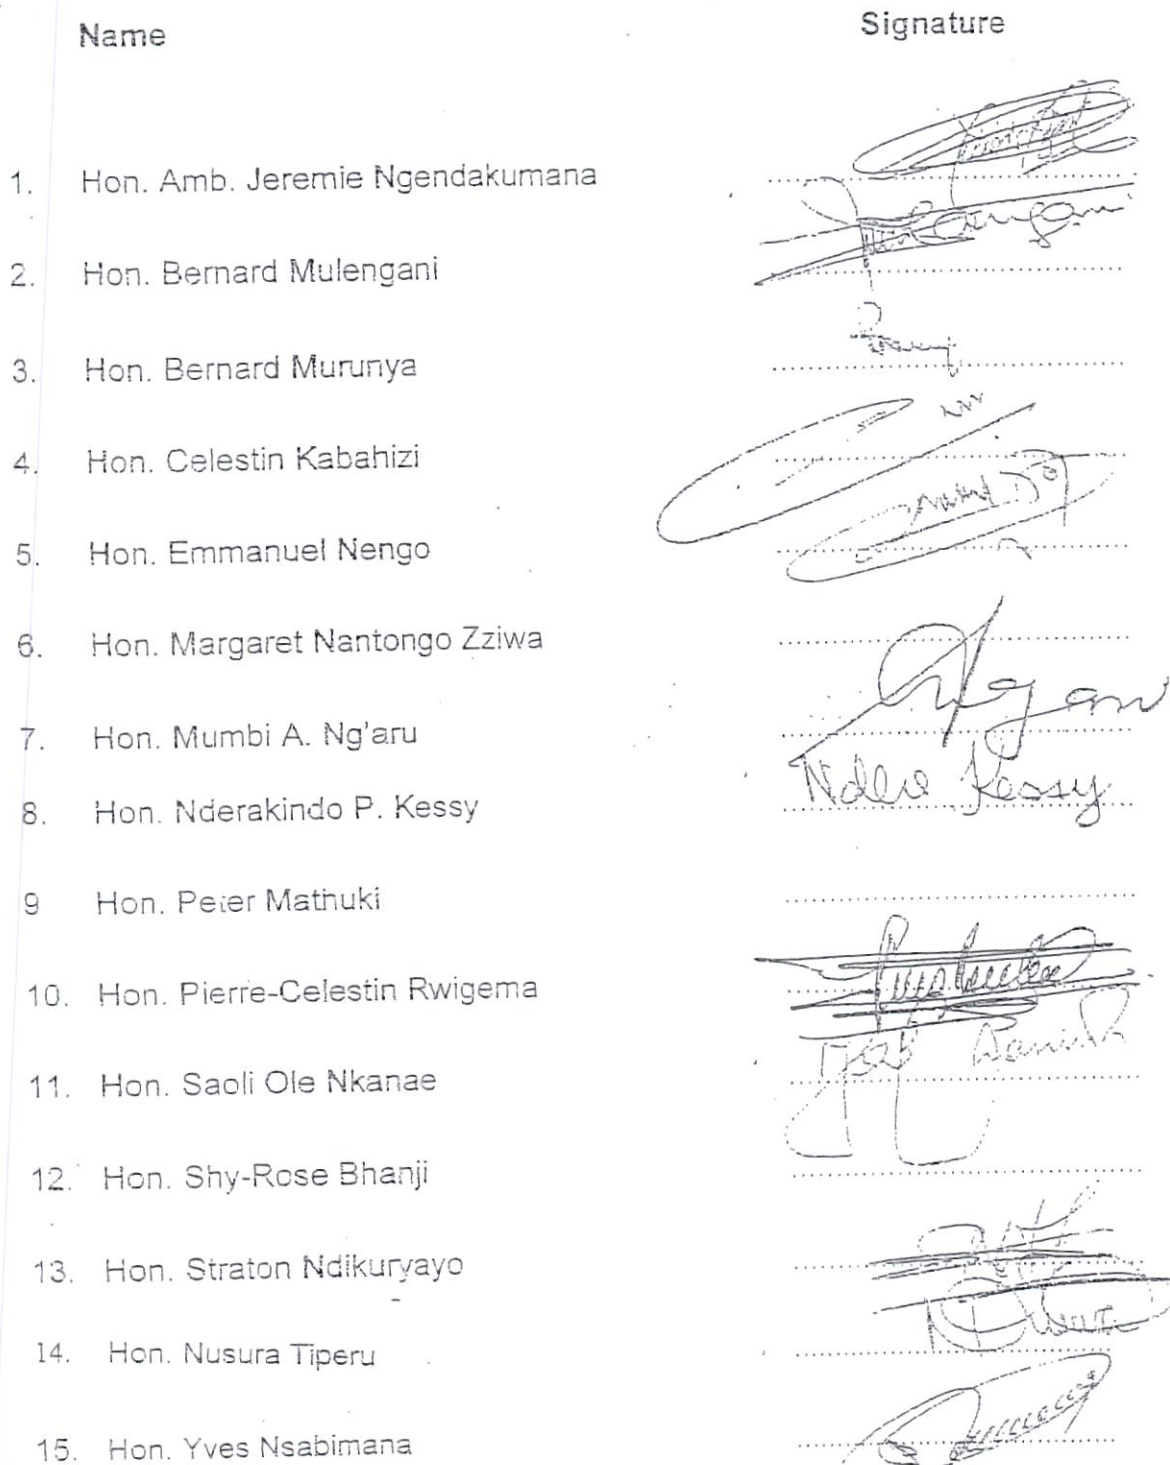 Name Signature
1. Hon. Amb. Jeremie Ngendakumana
2. Hon. Bernard Mulengani
3. Hon. Bernard Murunya
4. Hon. Celestin Kabahizi
5. Hon. Emmanuel Nengo
6. Hon. Margaret Nantongo Zziwa
7. Hon. Mumbi A. Ng'aru
8. Hon. Nderakindo P. Kessy Ndere Kessy
9 Hon. Peter Mathuki
10. Hon. Pierre-Celestin Rwigema
11. Hon. Saoli Ole Nkanae
12. Hon. Shy-Rose Bhanji
13. Hon. Straton Ndikuryayo
14. Hon. Nusura Tiperu
15. Hon. Yves Nsabimana